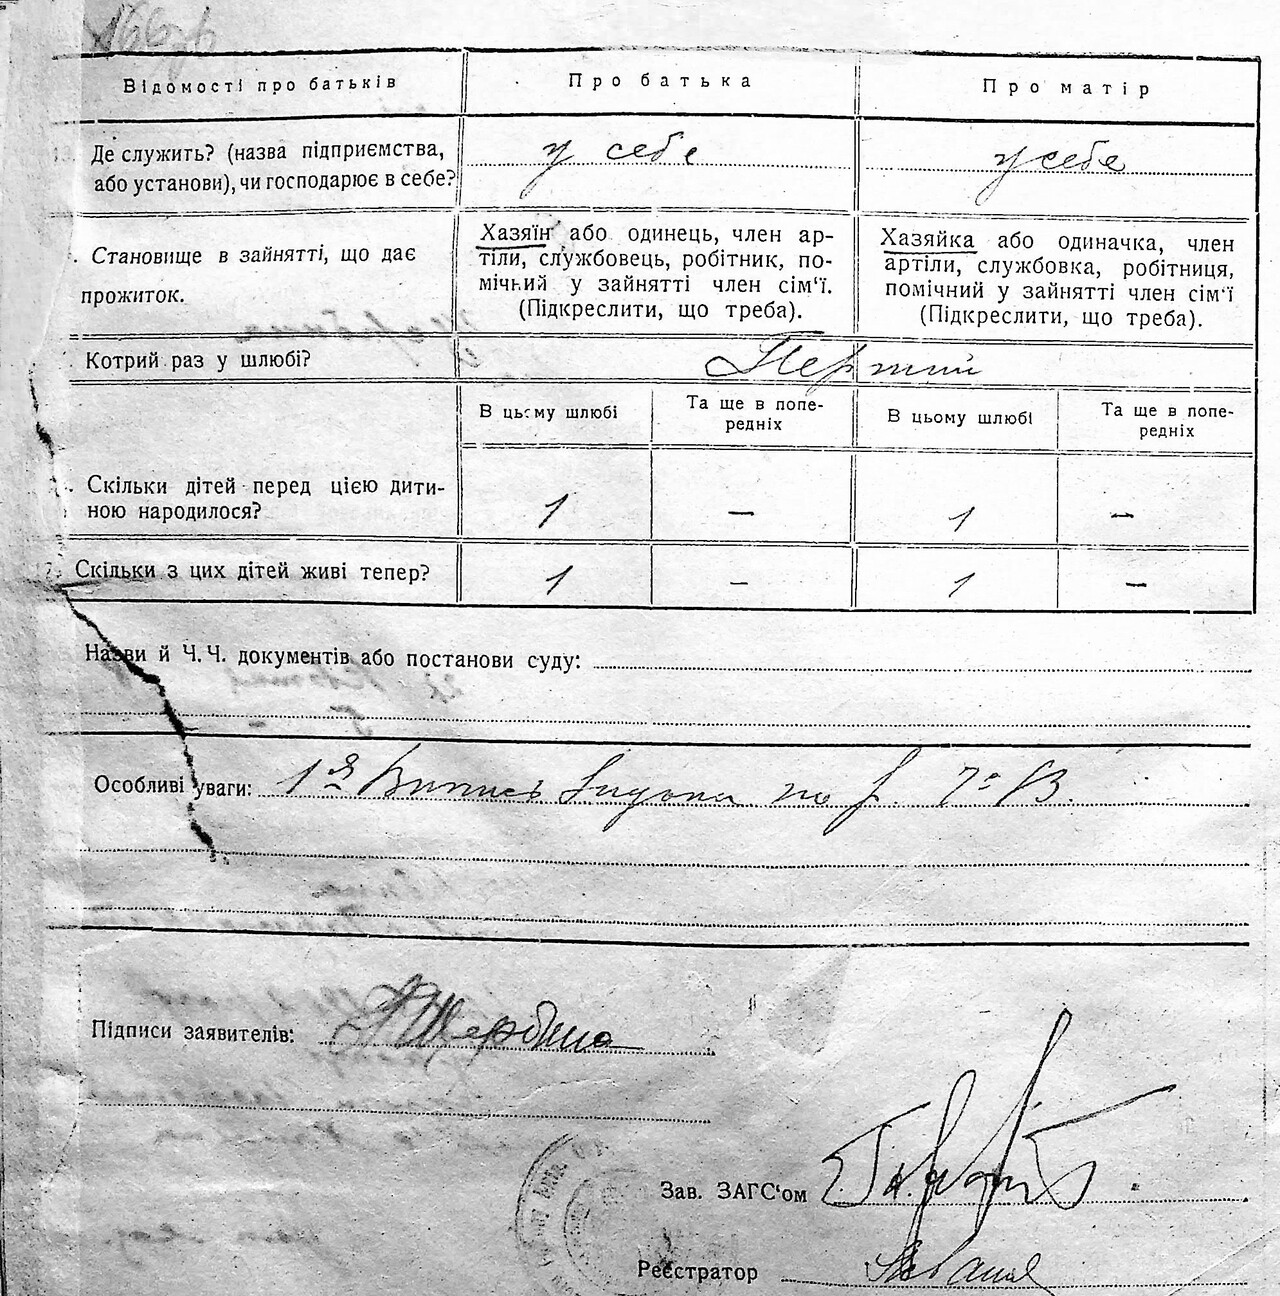 166зв
Відомості про батьків
Про батька
Про матір
Де служить? (назва підприємства,
або установи), чи господарює в себе?
у себе
у себе
Становище в зайнятті, що дає
прожиток.
Хазяїн або одинець, член ар-
тіли, службовець, робітник, по-
мічний у зайнятті член сім‘ї.
(Підкреслити, що треба).
Хазяйка або одиначка, член
артіли, службовка, робітниця,
помічний у зайнятті член сім‘ї
(Підкреслити, що треба).
Котрий раз у шлюбі?
Перший
В цьому шлюбі
Та ще в попе-
редніх
В цьому шлюбі
Та ще в попе-
редніх
Скільки дітей перед цією дити-
ною народилося?
1
–
1
–
Скільки з цих дітей живі тепер?
1
–
1
–
Назви й Ч. Ч. документів або постанови суду:
Особливі уваги: 1я Випись
Підписи заявителів: Щербина
Зав. ЗАГС‘ом
Реєстратор